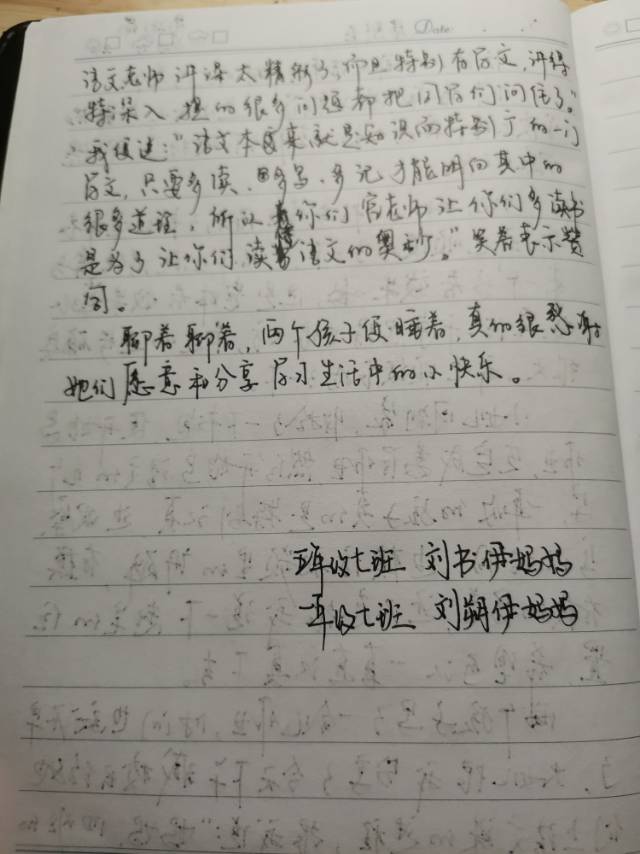 Date:
语文老师讲课太精彩了，而且特别有层次，讲得
特深入，提的很多问题都把同学们问住了。"
我便道："语文本身来就是知识面特别广的一门
学文，只要多读、多写、多记才能明白其中的
很多道理，所以你们官老师让你们多读书
是为了让你们读懂语文的奥妙。"笑着表示赞
同。
聊着聊着，两个孩子便睡着，真的很感谢
她们愿意和分享学习生活中的小快乐。
五年级七班 刘书伊妈妈
一年级七班 刘朔伊妈妈